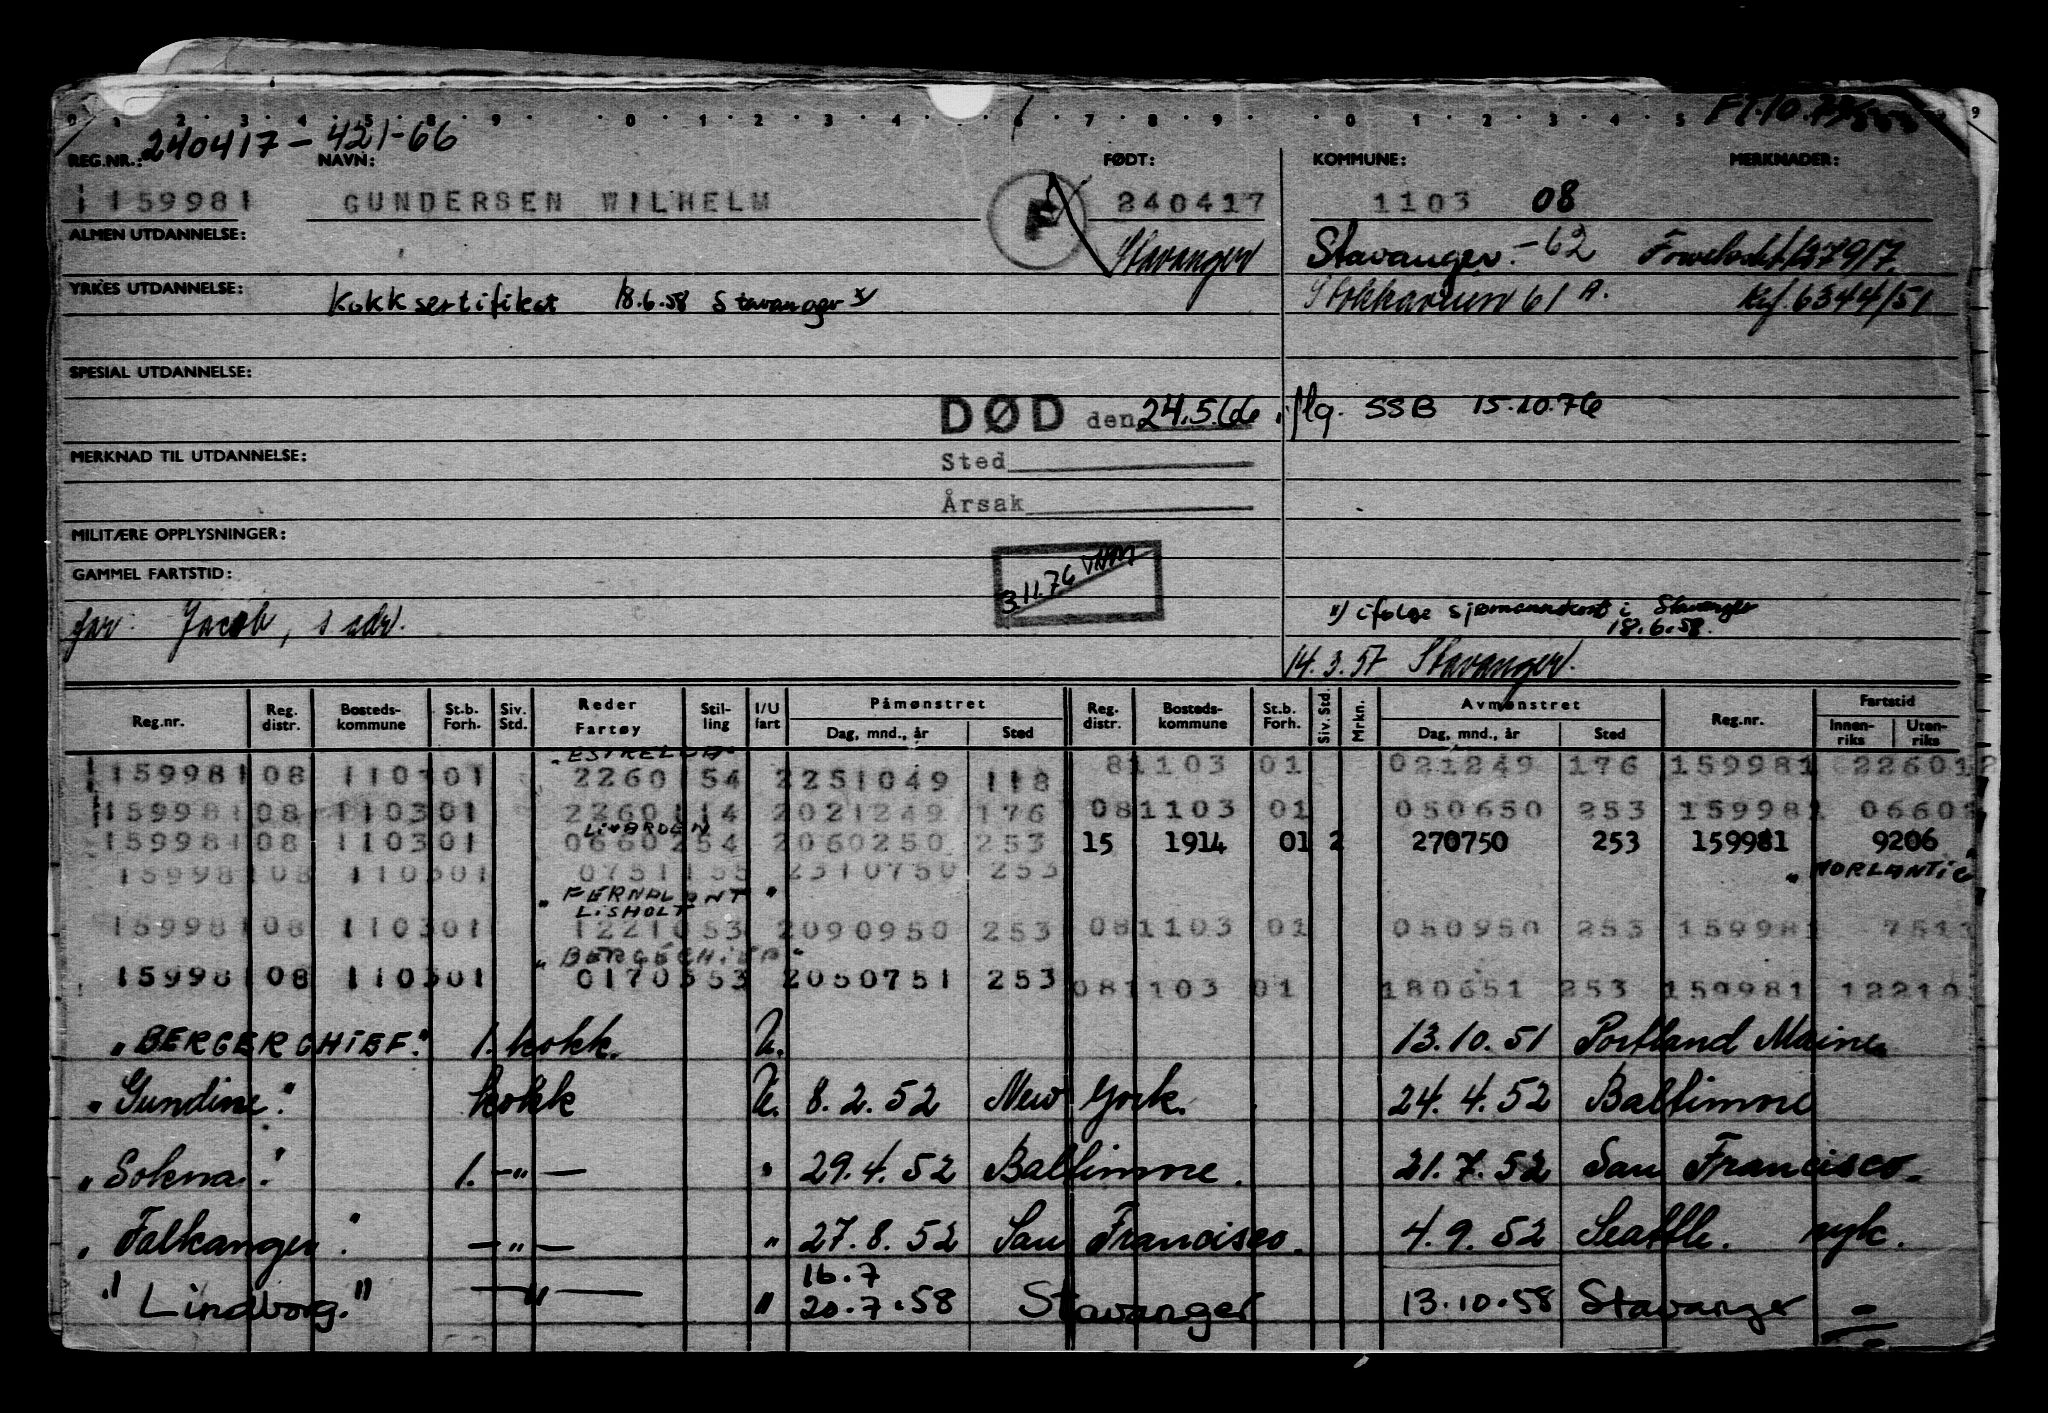 240417-421-66
REG.NR.: NAVN: FØDT: KOMMUNE: MERKNADER:
159981 GUNDERSEN WILHELM F 240417 1103 08
ALMEN UTDANNELSE: Stavanger Stavanger. -62
YRKES UTDANNELSE: Kokksertifikat 18.6.58 Stavanger x) 61 A. 6344/51
SPESIAL UTDANNELSE:
DØD den 24.5.66 iflg. SSB 15.10.76
MERKNAD TIL UTDANNELSE: Sted
Årsak
MILITÆRE OPPLYSNINGER:
GAMMEL FARTSTID: 3.11.76
far: Jacob, s adr. x) ifølge sjømannskort i Stavanger
18.6.58.
14.3.57 Stavanger.
Reg.nr. Reg. distr. Bosteds-kommune St.b. Forh. Siv. Std. Reder Fartøy Stil-ling I/U fart Påmønstret Dag, mnd., år Sted Reg. distr. Bosteds-kommune St.b. Forh. Siv. Std. Mrkn. Avmønstret Dag, mnd., år Sted Reg.nr. Fartstid Innen-riks Uten-riks
159981 08 1103 01 2260 154 2251049 118 81103 01 021249 176 159981 226012
159981 08 1103 01 2260 114 2021249 176 081103 01 050650 253 159981 06602
159981 08 1103 01 0660254 2060250 253 15 1914 01 2 270750 253 159981 9206
159981 08 1103 01 0751155 2310750 253 "NORLANTIC
"FERNPLANT"
LISHOLT
159981 08 1103 01 1221053 2090950 253 081103 01 050950 253 159981 7511
"BERGECHIEF"
159981 08 1103 01 0170353 2050751 253 081103 01 180651 253 159981 12210
"BERGERCHIEF." 1. kokk. U. 13.10.51 Portland Maine
"Gundine." kokk U. 8.2.52 New York. 24.4.52 Baltimore
"Sokna." 1. -"- " 29.4.52 Baltimore. 21.7.52 San Francisco.
"Falkanger". -"- " 27.8.52 San Francisco. 4.9.52 Seattle. syk.
16.7
"Lindborg." -"- " 20.7.58 Stavanger 13.10.58 Stavanger